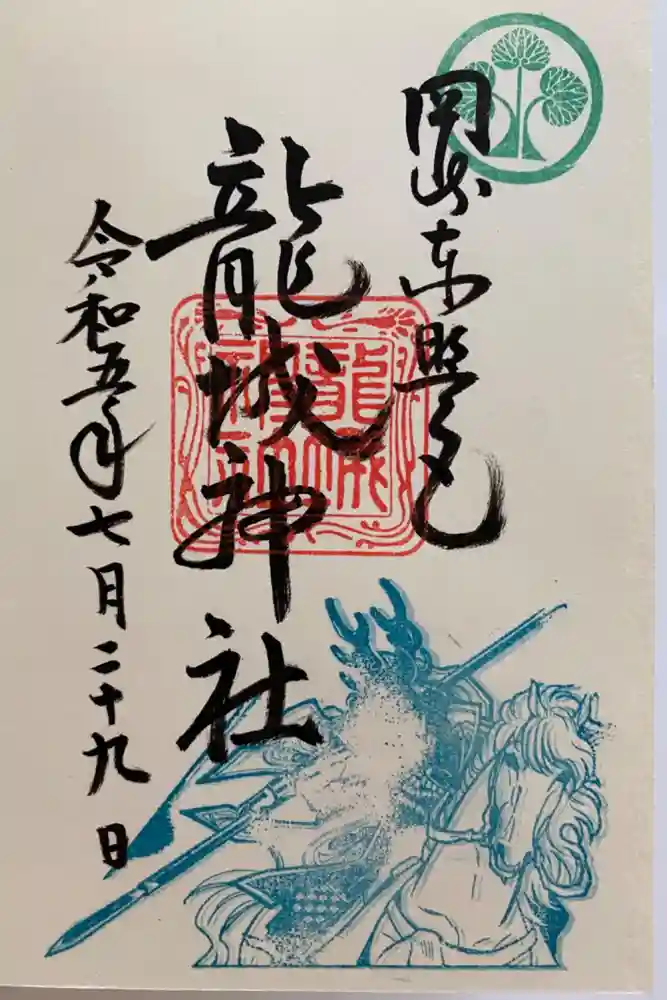 岡崎東照宮
龍城神社
龍城神社
令和五年七月二十九日